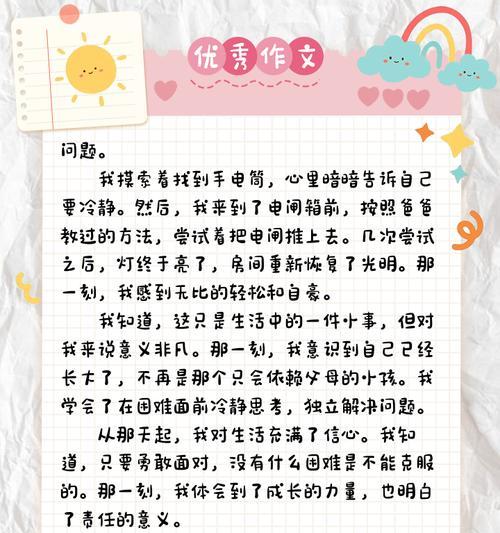 优秀作文
问题。
我摸索着找到手电筒，心里暗暗告诉自己
要冷静。然后，我来到了电闸箱前，按照爸爸
教过的方法，尝试着把电闸推上去。几次尝试
之后，灯终于亮了，房间重新恢复了光明。那
一刻，我感到无比的轻松和自豪。
我知道，这只是生活中的一件小事，但对
我来说意义非凡。那一刻，我意识到自己已经
长大了，不再是那个只会依赖父母的小孩。我
学会了在困难面前冷静思考，独立解决问题。
从那天起，我对生活充满了信心。我知
道，只要勇敢面对，没有什么困难是不能克服
的。那一刻，我体会到了成长的力量，也明白
了责任的意义。